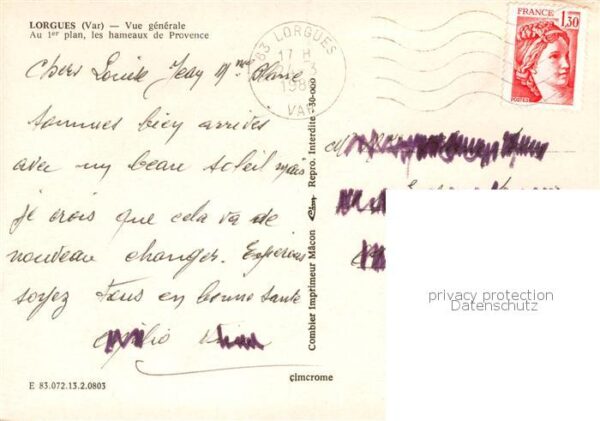 LORGUES (Var) — Vue générale
Au 1er plan, les hameaux de Provence
83 LORGUES
17 H
198
VAR
FRANCE
1,30
chers Louise Jean Mme Blanc
sommes bien arrivés
avec un beau soleil mais
je crois que cela va de
nouveau changer. Espérons
soyez tous en bonne santé
Combier Imprimeur Mâcon Cim Repro. Interdite 30-000
çimcrome
E 83.072.13.2.0803
privacy protection
Datenschutz